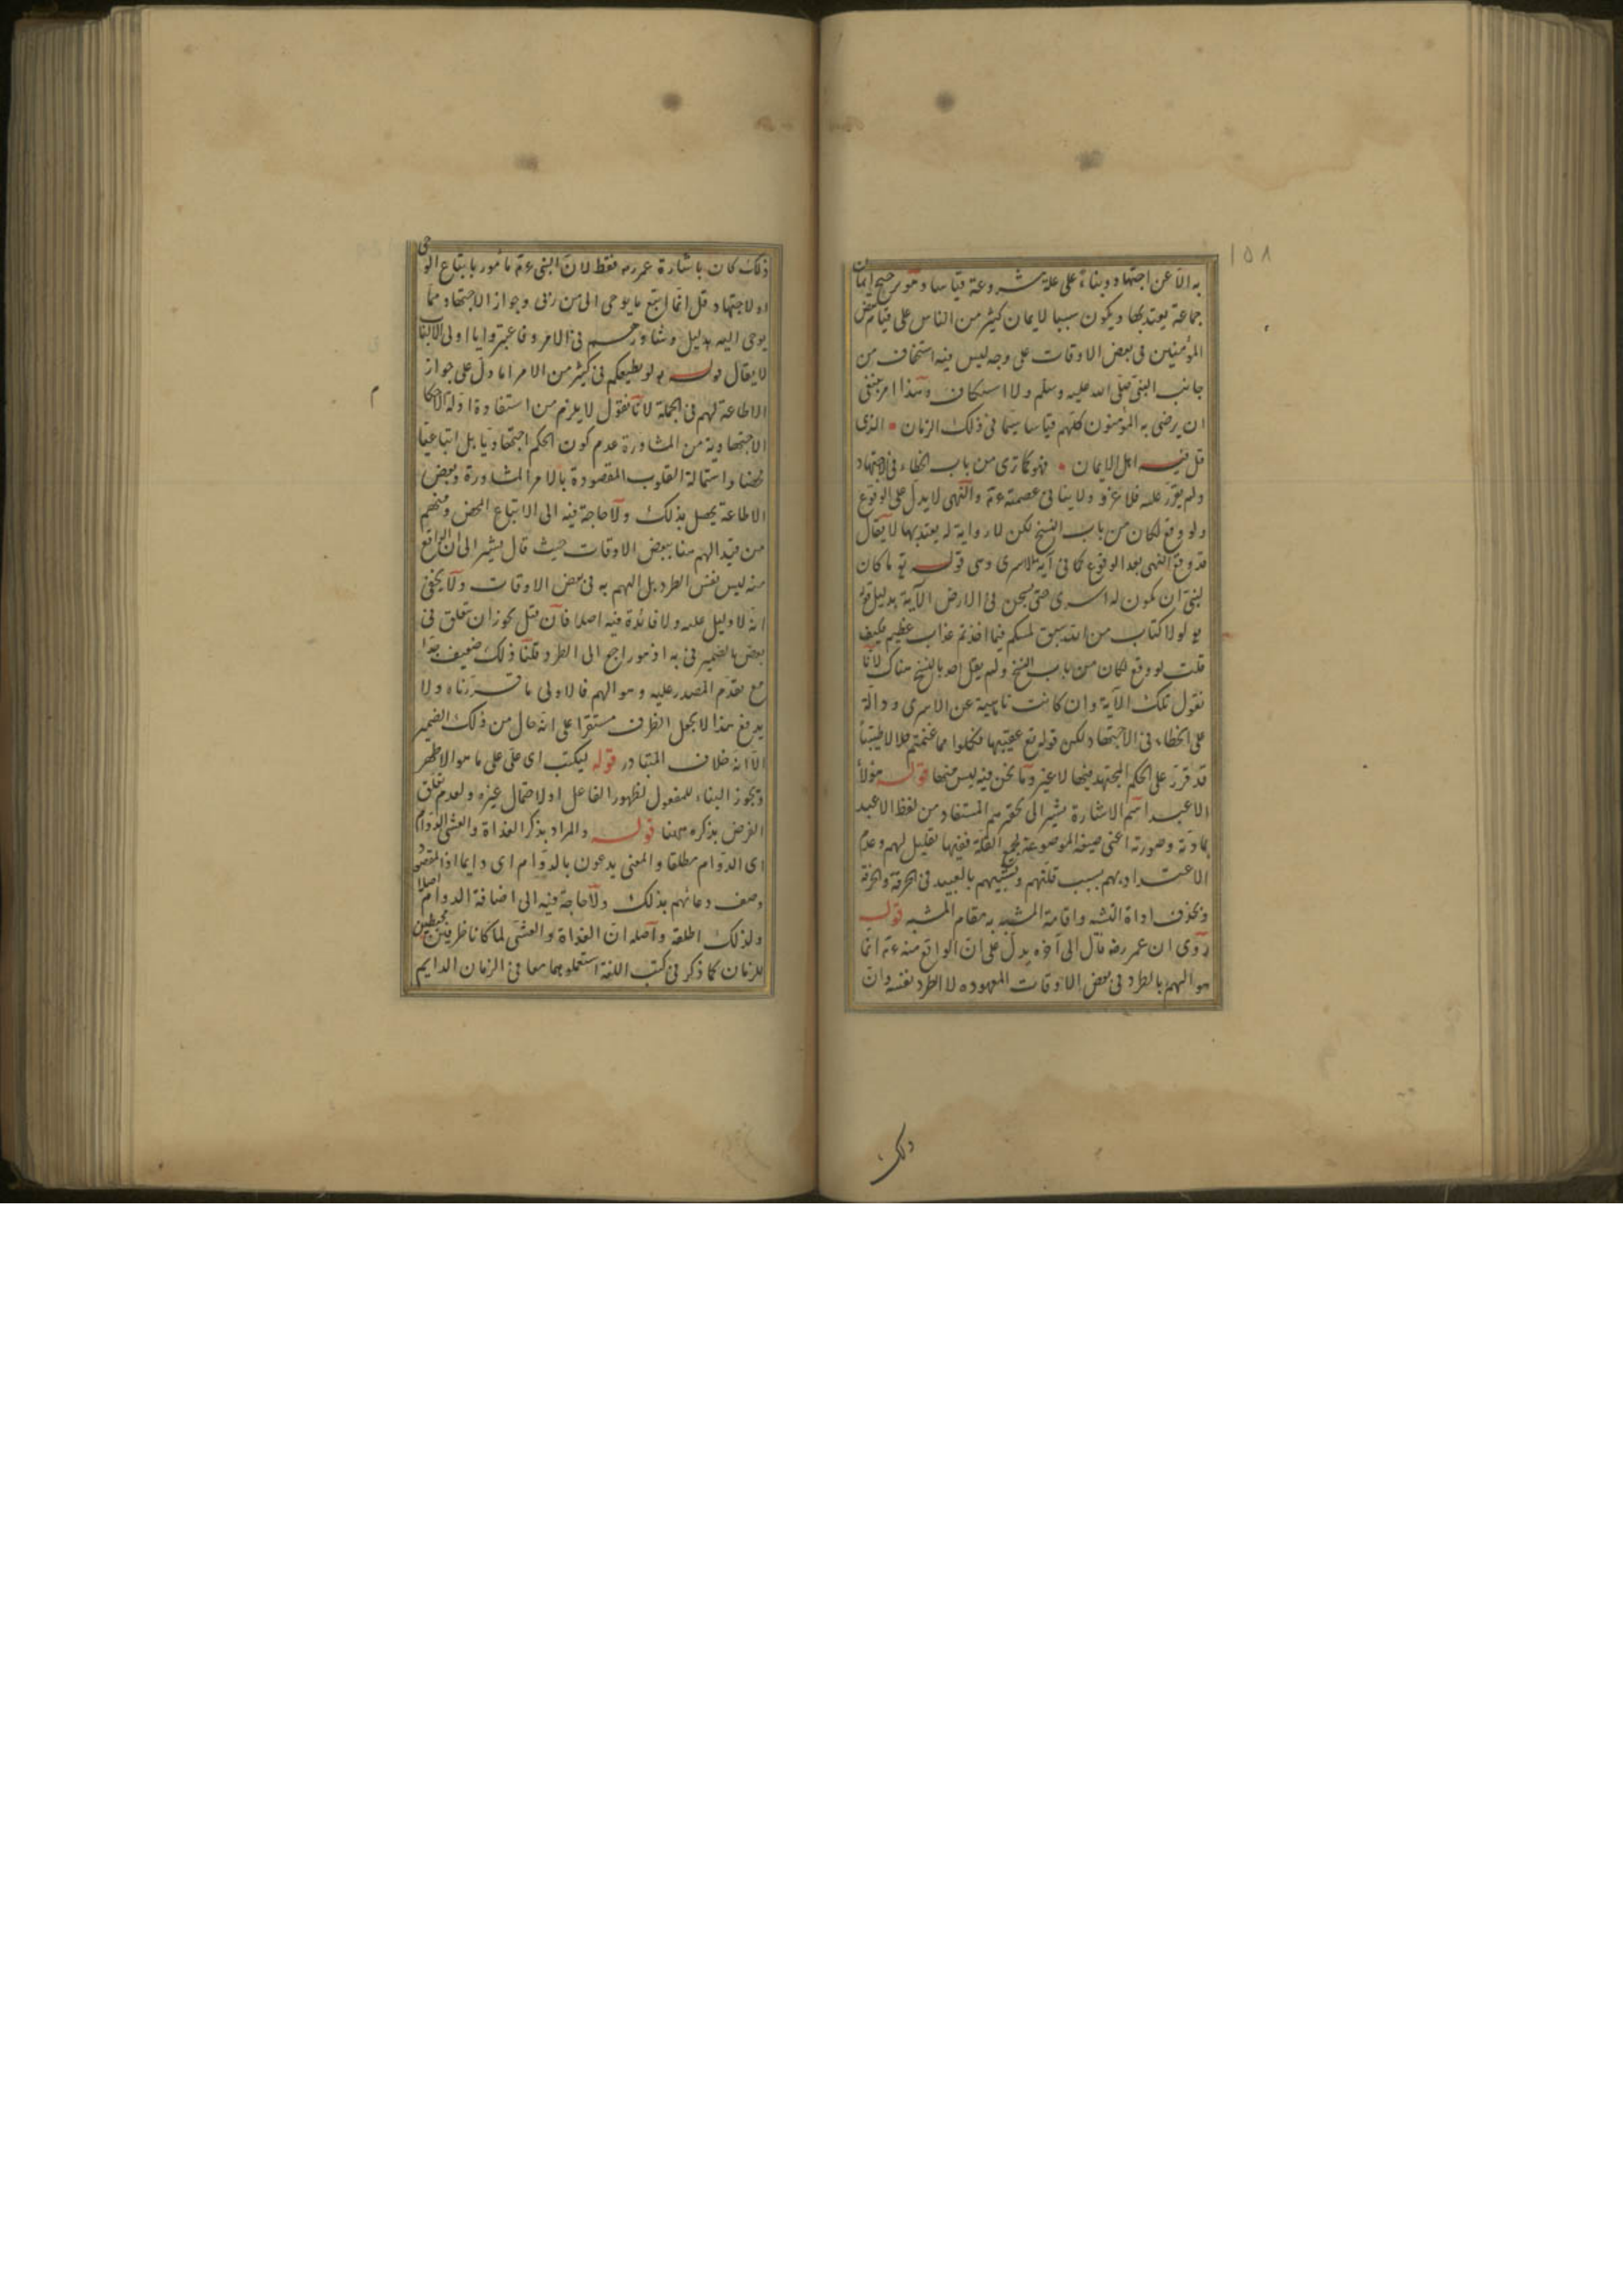 ١٥٨
به الا عن اجتهاد وبناء على علة مشروعة قياسا وهو ترجيح ايمان
جماعة يعتد بها ويكون سببا لايمان كثير من الناس على قيام بعض
المؤمنين فى بعض الاوقات على وجه ليس فيه استخفاف من
جانب النبى صلى الله عليه وسلم ولا استنكاف وهذا امر ينبغى
ان يرضى به المؤمنون كلهم قياسا سيما فى ذلك الزمان • الذى
قل فيه اهل الايمان • فهو كما ترى من باب الخطاء فى الاجتهاد
ولم يقرر عليه فلا غرو ولا ينا فى عصمته ءم والنهى لا يدل على الوقوع
ولو وقع لكان من باب النسخ لكن لا رواية له يعتد بها لا يقال
قد وقع النهى بعد الوقوع كما فى آية الاسرى وهى قوله تع ما كان
لنبى ان يكون له اسرى حتى يثخن فى الارض الآية بدليل قوله
تع لولا كتاب من الله سبق لمسكم فيما اخذتم عذاب عظيم فكيف
قلت لو وقع لكان من باب النسخ ولم يقل احد بالنسخ هناك لانا
نقول تلك الآية وان كانت ناهية عن الاسرى ودالة
على الخطاء فى الاجتهاد لكن قوله تع عقيبها فكلوا مما غنمتم حلالا طيبا
قد قرر على الحكم المجتهد فيها لا غير وما نحن فيه ليس منها قوله هؤلاء
الاعبد اسم الاشارة يشير الى تحقيرهم المستفاد من لفظ الاعبد
بمادته وصورته اعنى صيغة الموضوعة لجمع القلة ففيها تقليل لهم وعدم
الاعتداد بهم بسبب قلتهم وتشبيههم بالعبيد فى الحرفة والخرقة
وبحذف اداة التشبه واقامة المشبه به مقام المشبه قوله
روى ان عمر رضه قال الى آخره يدل على ان الواقع منه ءم انما
هو الهم بالطرد فى بعض الاوقات المعهوده لا الطرد نفسه وان
ذلك
ذلك كان باشارة عمر رضه فقط لان النبى ءم مأمور باتباع الوحى
او لاجتهاد قل انما اتبع ما يوحى الى من ربى وجواز الاجتهاد مما
يوحى اليه بدليل وشاورهم فى الامر وفاعتبروا يا اولى الالباب
لا يقال قوله تع لو يطيعكم فى كثير من الامر اما دل على جواز
الاطاعة لهم فى الجملة لانا نقول لا يلزم من استفادة ادلة الاحكام
الاجتهادية من المشاورة عدم كون الحكم اجتهاديا بل اتباعيا
محضا واستمالة القلوب المقصودة بالامر المشاورة وبعض
الاطاعة يحصل بذلك ولا حاجة فيه الى الاتباع المحض ومنهم
من قيد الهم هنا ببعض الاوقات حيث قال يشير الى ان الواقع
منه ليس نفس الطرد بل الهم به فى بعض الاوقات ولا يخفى
انه لا دليل عليه ولا فائدة فيه اصلا فان قيل يجوز ان يتعلق فى
بعض بالضمير فى به اذ هو راجع الى الطرد قلنا ذلك ضعيف جدا
مع تقدم المصدر عليه وهو الهم فالاولى ما قررناه ولا
يدفع هذا لا يجعل الظرف مستقرا على انه حال من ذلك الضمير
الا انه خلاف المتبادر قوله ليكتب اى على على ما هو الاظهر
ويجوز البناء للمفعول لظهور الفاعل او لاحتمال غيره ولعدم تعلق
الغرض بذكره ههنا قوله والمراد بذكر الغداة والعشى الدوام
اى الدوام مطلقا والمعنى يدعون بالدوام اى دايما اذ المقصود
وصف دعائهم بذلك ولا حاجة فيه الى اضافة الدوام اصلا
ولذلك اطلقه واصله ان الغداة والعشى لما كانا ظرفين محيطين
للزمان كما ذكر فى كتب اللغة استعملو هما معا فى الزمان الدايم
م